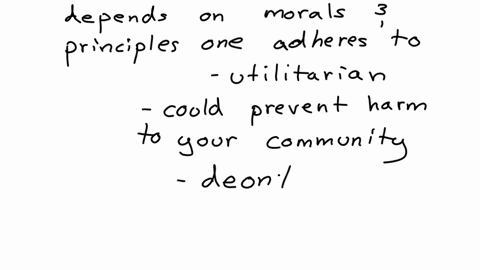 depends on morals &
principles one adheres to
- utilitarian
- could prevent harm
to your community
- deon